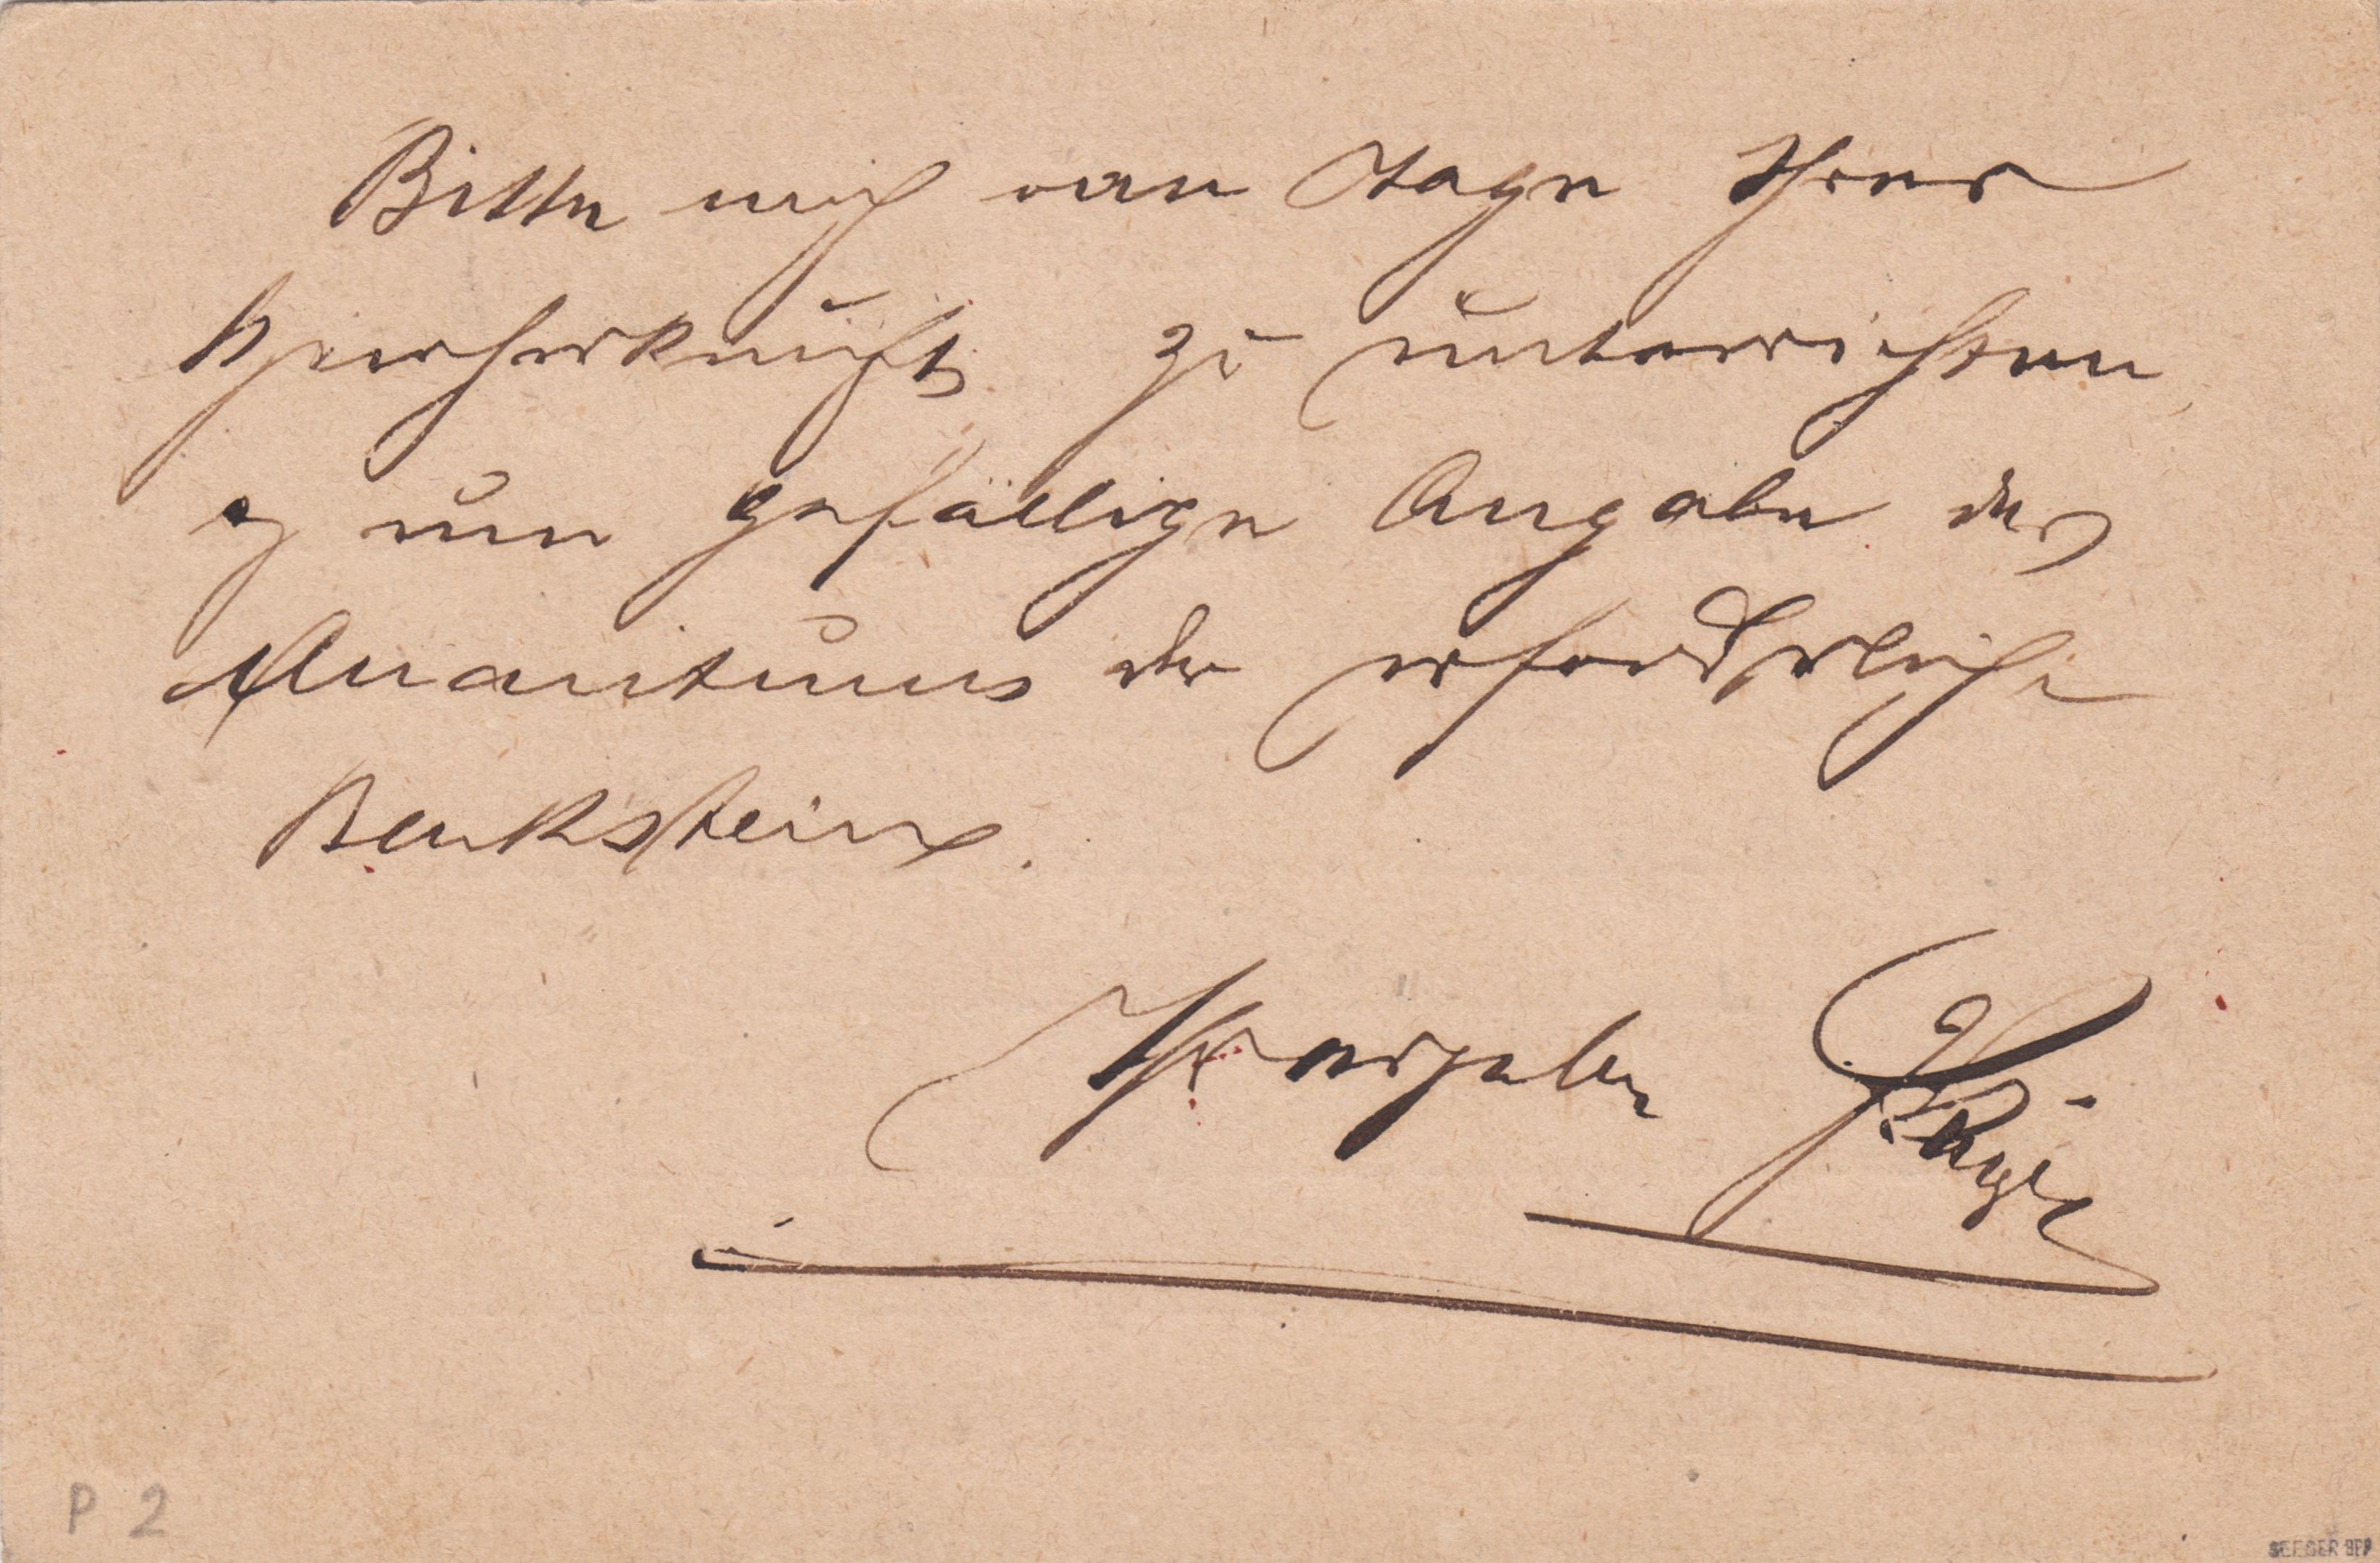 Bitte mich vom Tage Ihrer
zu unterrichten
um gefällige Angabe des
Quantums der erforderliche
Backsteine.
P 2